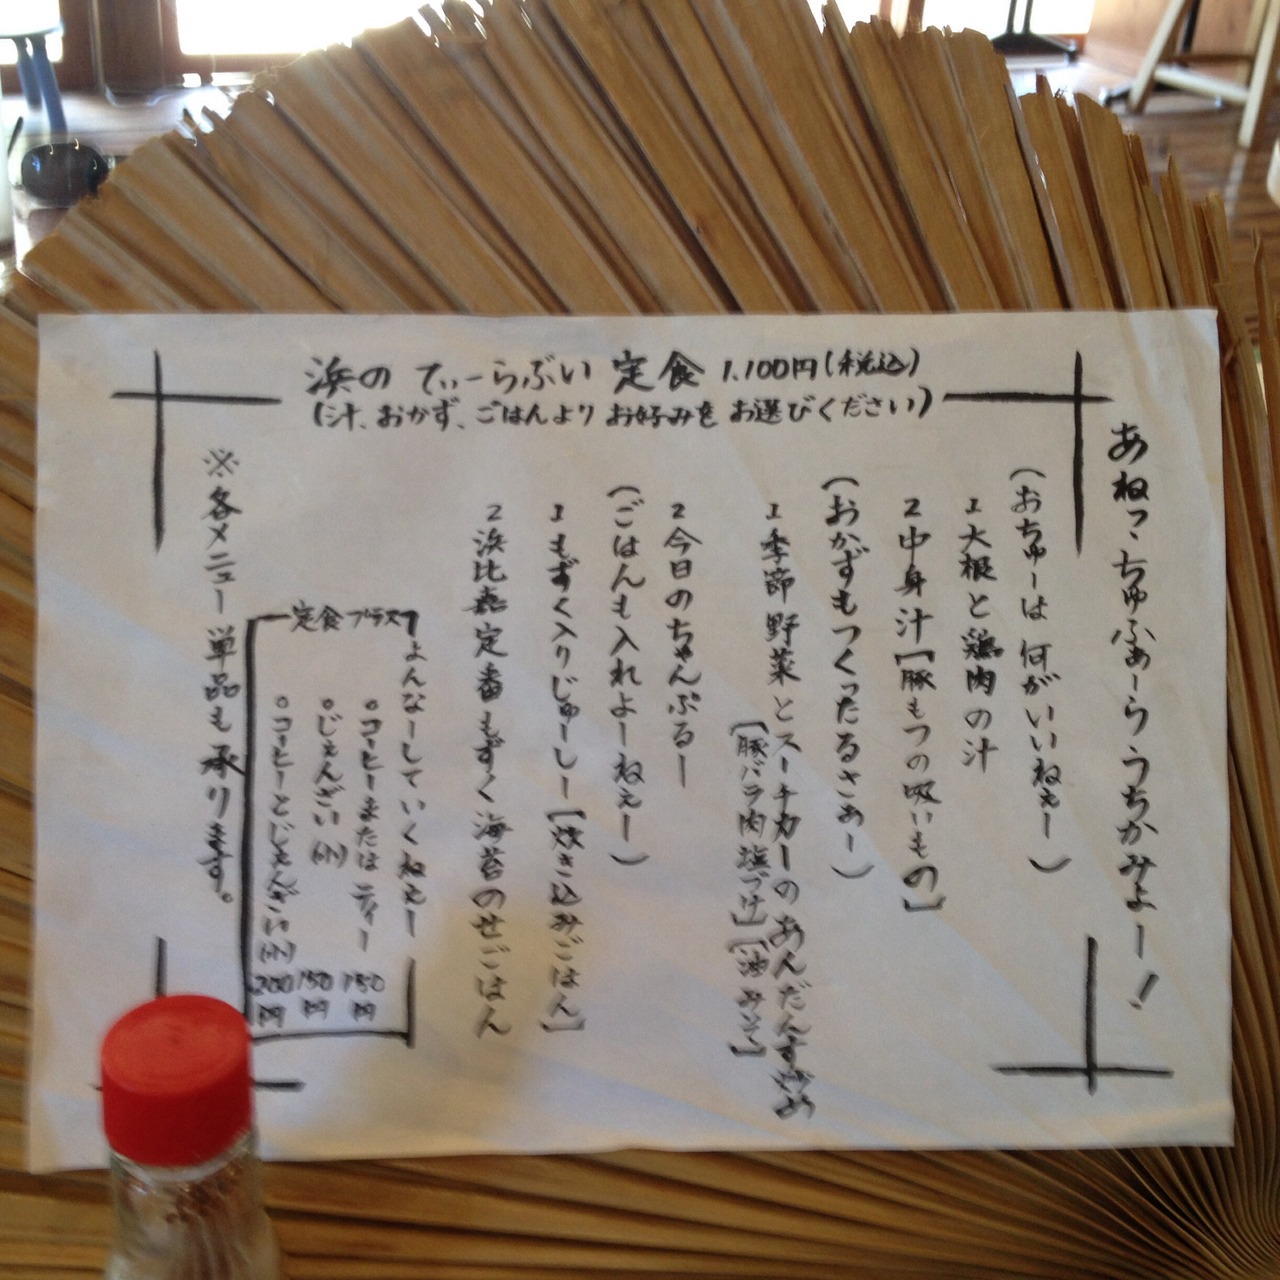 浜の てぃーらぶい 定食 1.100円(税込)
(汁、おかず、ごはんより お好みを お選びください)
あねっ、ちゅふぁーら うちかみよー!
(おちゅーは 何がいいねぇー)
1 大根と鶏肉の汁
2 中身汁[豚もつの吸いもの]
(おかずもつくったるさぁー)
1 季節野菜とスーチカーのあんだんすー炒め
[豚バラ肉塩づけ] [油みそ]
2 今日のちゃんぷるー
(ごはんも入れよーねぇー)
1 もずく入りじゅーしー[炊き込みごはん]
2 浜比嘉定番もずく海苔のせごはん
定食プラス
よんなーしていくねぇー
○コーヒーまたはティー 150円
○じぇんざい(小) 150円
○コーヒーとじぇんざい(小) 200円
※各メニュー単品も承ります。